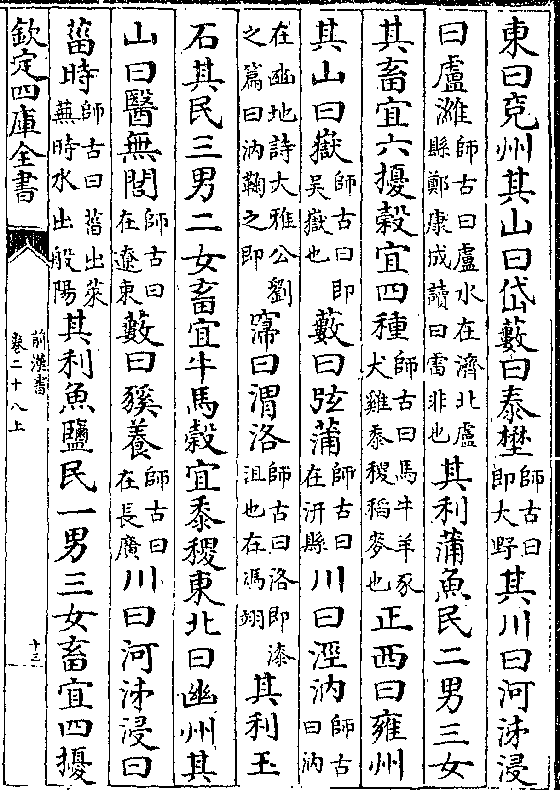 東曰兗州其山曰岱藪曰泰壄師古曰即大野其川曰河泲浸
曰盧濰師古曰盧水在濟北盧縣鄭康成讀曰雷非也其利蒲魚民二男三女
其畜宜六擾穀宜四種師古曰馬牛羊豕犬雞黍稷稻麥也正西曰雍州
其山曰嶽師古曰即吳嶽也藪曰弦蒲師古曰在汧縣川曰涇汭師古曰汭
在豳地詩大雅公劉之篇曰汭鞫之即𥧲曰渭洛師古曰洛即漆沮也在馮翊其利玉
石其民三男二女畜宜牛馬穀宜黍稷東北曰幽州其
山曰醫無閭師古曰在遼東藪曰豯養師古曰在長廣川曰河泲浸曰
菑時師古曰菑出萊蕪時水出般陽其利魚鹽民一男三女畜宜四擾
欽定四庫全書
前漢書
卷二十八上
十三